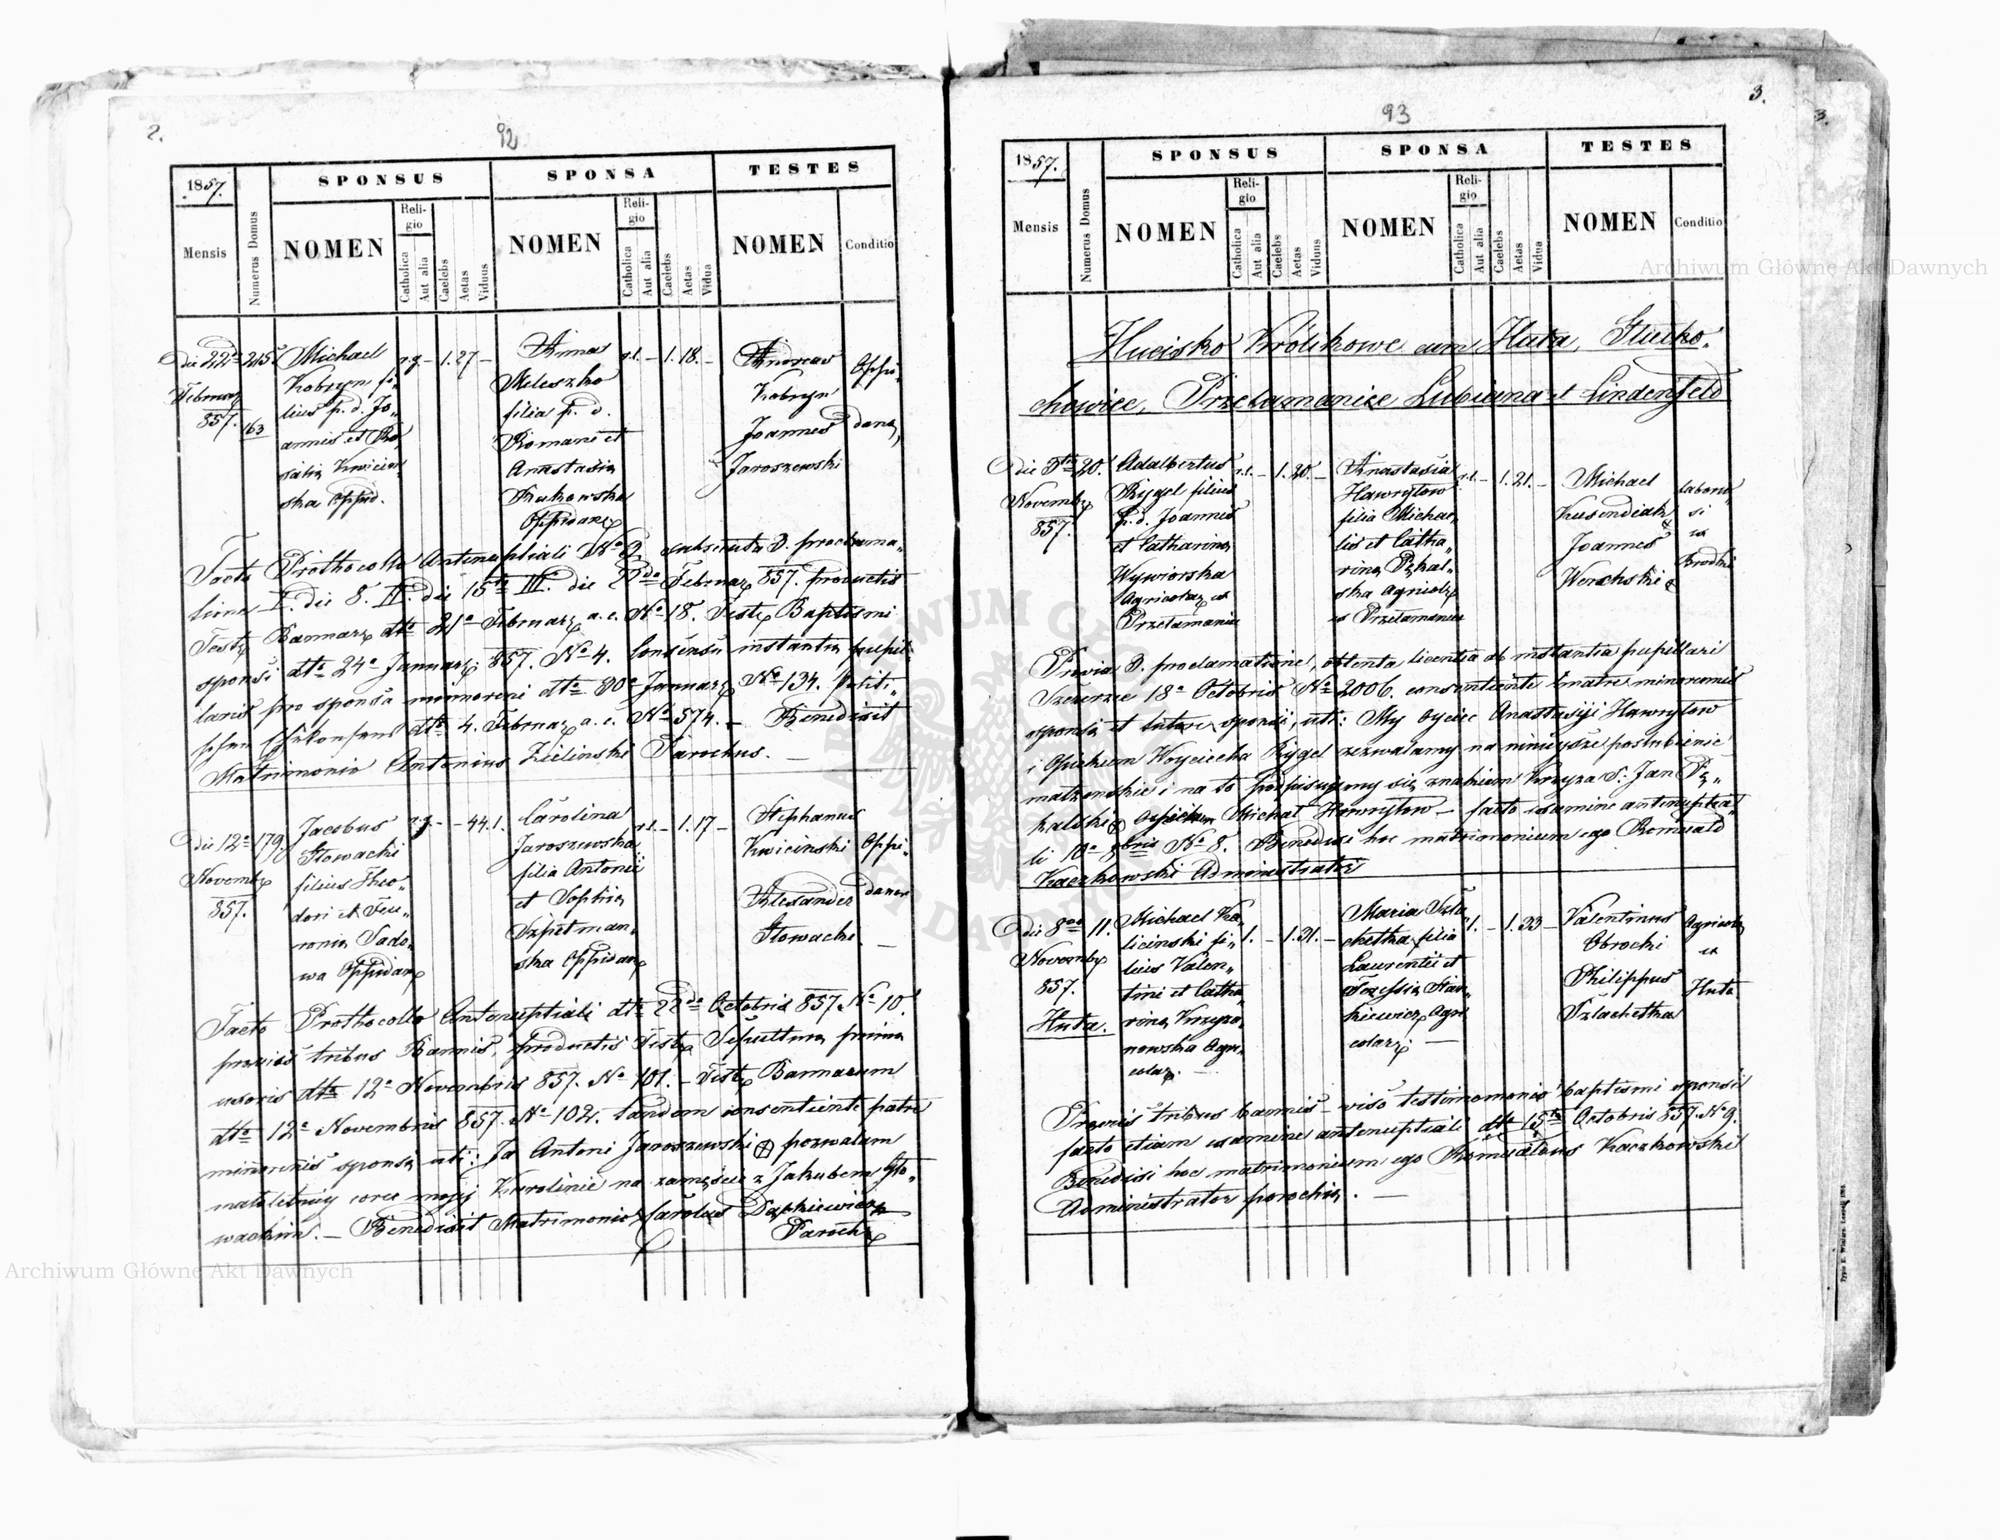 2.
92
1857.
SPONSUS
SPONSA
TESTES
Mensis
Numerus Domus
NOMEN
Religio
Catholica
Aut alia
Caelebs
Aetas
Viduus
NOMEN
Religio
Catholica
Aut alia
Caelebs
Aetas
Vidua
NOMEN
Conditio
die 22a
Februarz
857.
245.
163
Michael
Kobryn fi„
lius p. d. Jo„
annis et Ro
salia Kwiciń
ska oppid.
r.g. – 1. 27 –
Anna
Meleszko
filia p. d.
Romani et
Anastasia
Krukowska
Oppidanz
r.l. – 1. 18. –
Andreas
Kobryn
Joannes
Jaroszewski
Oppi„
dana
Facto Prothocollo Antenuptiali No 2 subsecuta 3. proclama„
tione I. die 8. II. die 15ta III. die 22da Februarz 857. productis
Testz Bannarz dto 21a Februarz a. c. No 18. Testz Baptismi
sponsi dto 24a Januarz 857. No 4. Consensu instantia pupil„
laris pro sponsa minoreni dto 30a Januarz No 134. Politi„
schen Ehekonsens dto 4. Februarz a. c. No 574. – Benedixit
Matrimonio Antonius Zieliński Parochus. –
die 12a
Novembz
857.
179.
Jacobus
Słowacki
filius Theo„
dori et Feu„
ronia Sado„
wa Oppidanz
r.g. – – 44. 1.
Carolina
Jaroszewska
filia Antonii
et Sophia
Szpetmań„
ska Oppidanz
r.l. – 1. 17 –
Stephanus
Kwiciński
Alexander
Słowacki
Oppi„
danz
–
Facto Prothocollo Antenuptiali dto 22da Octobris 857. No 10.
praviis tribus Bannis, productis Testz Sepultura prima
uxoris dto 12a Novembris 857. No 101. – Testz Bannarum
dto 12a Novembris 857. No 102. tandem consentiente patre
minorenis sponsa uti: Ja Antoni Jaroszewski ⊕ pozwalam
małoletniey corce mojej Karolinie na zamęście z Jakubem Sło„
wackim. – Benedixit Matrimonio Carolus Daszkiewicz
Parochz
3.
93
1857.
SPONSUS
SPONSA
TESTES
Mensis
Numerus Domus
NOMEN
Religio
Catholica
Aut alia
Caelebs
Aetas
Viduus
NOMEN
Religio
Catholica
Aut alia
Caelebs
Aetas
Vidua
NOMEN
Conditio
Hucisko Królikowe cum Huta, Głucho„
howice, Przełamanice Lubiana et Lindenfeld
die 5ta
Novembz
857.
20.
Adalbertus
Rygel filius
p. d. Joannes
et Catharina
Wywiorska
Agricolaz ex
Przełamanic
r.l. – 1. 20. –
Anastasia
Hawryłow
filia Michae„
lis et Catha„
rina Pękal„
ska Agricolz
ex Przełamanic
r.l. – 1. 21. –
Michael
Joannes
laborio„
si
ex
Brodki
Pravia 3. proclamatione, obtenta licentia ab instantia pupillari
Szczerzec 18a Octobris No 2006. consentiente matre minorennis
sponsa et tutore sponsi, uti: My oyciec Anastazyi Hawryłow
i Opiekun Woyciecha Rygel zezwalamy na ninieysze poslubienie
małżenskie i na to podpisujemy się znakiem krzyza S. Jan Pę„
kalski ⊕ opiekun Michał Hawryłow – facto examine antenuptia„
li 10a 8bris No 8. Benedixi hoc matrimonium ego Romuald
Kaczkowski Administrator
die 8va
Novembz
857.
Huta.
11.
Michael Ka„
liciński fi„
lius Valen„
tini et Catha„
rina Krzyza„
nowska Agri„
colaz. –
1. – 1. 31. –
Maria Szla„
chetka filia
Laurentii et
Teressia Stan„
kiewicz Agri
colarz. –
1. – 1. 33 –
Valentinus
Obrocki
Philippus
Szlachetka
Agricola
ex
Huta
Praviis tribus bannis – viso testimomonio baptismi sponsi
facto etiam examine antenuptiali dto 15ta Octobris 857. No 9.
Benedixi hoc matrimonium ego Romualdus Kaczkowski
Administrator parochia. –
3.
Archiwum Główne Akt Dawnych
Archiwum Główne Akt Dawnych